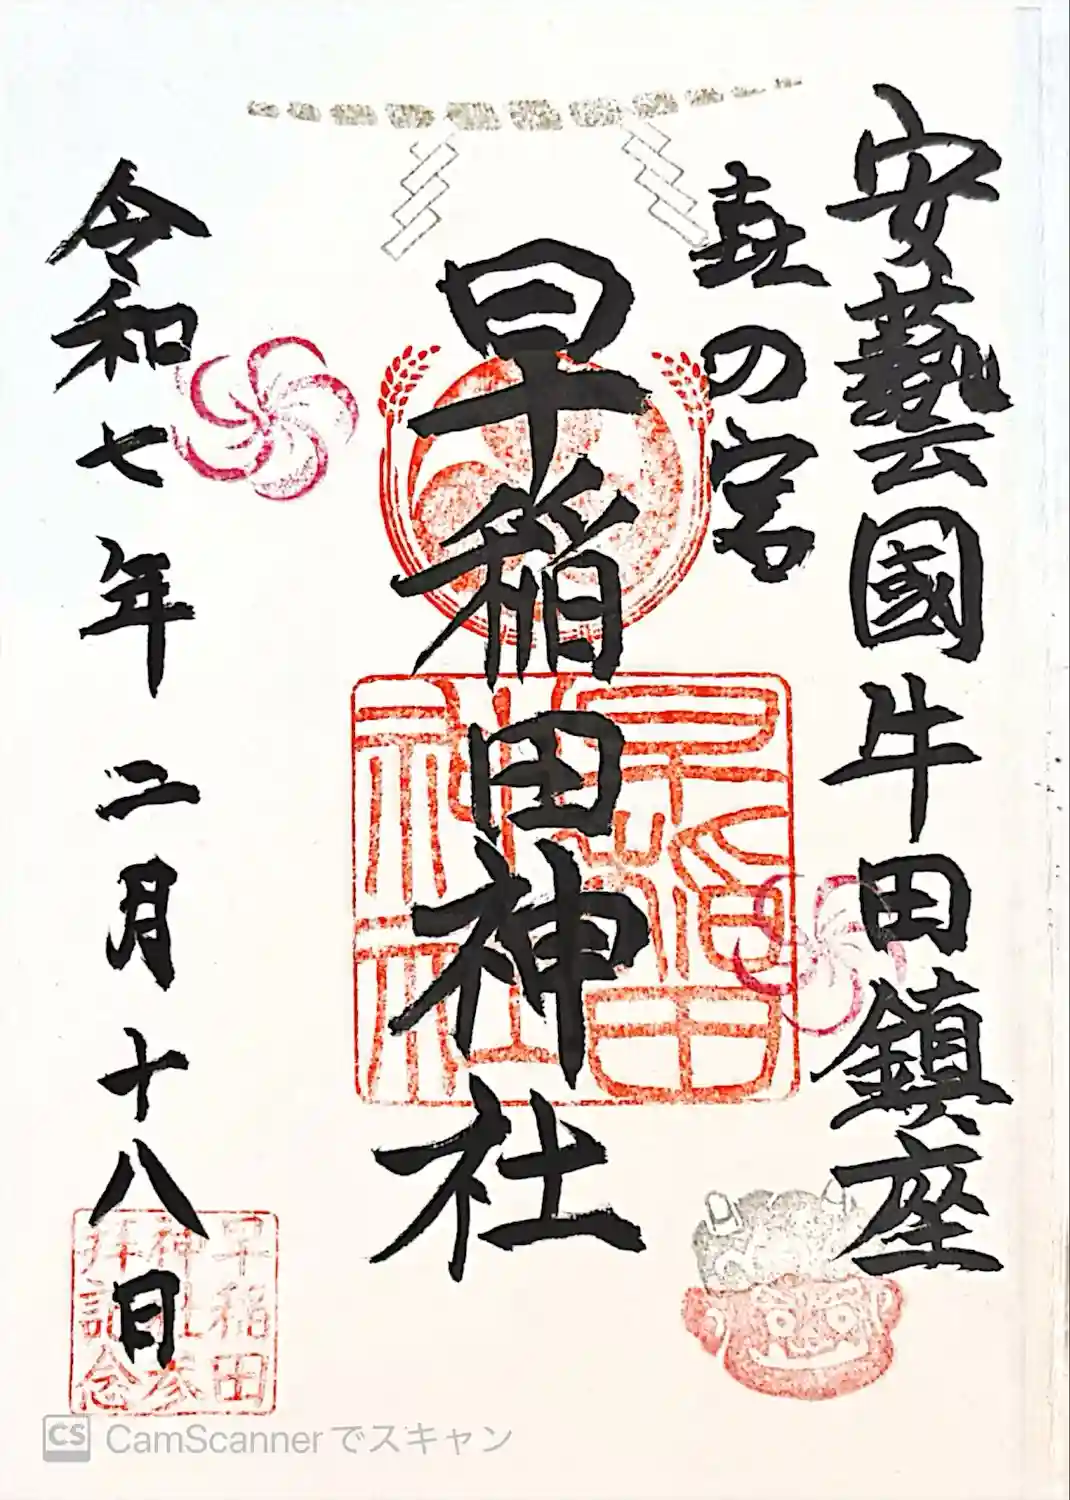 安藝國牛田鎮座
の宮
早稲田神社
早稲田
神社
令和七年二月十八日
早稲田
神社参
拝記念
CS CamScannerでスキャン